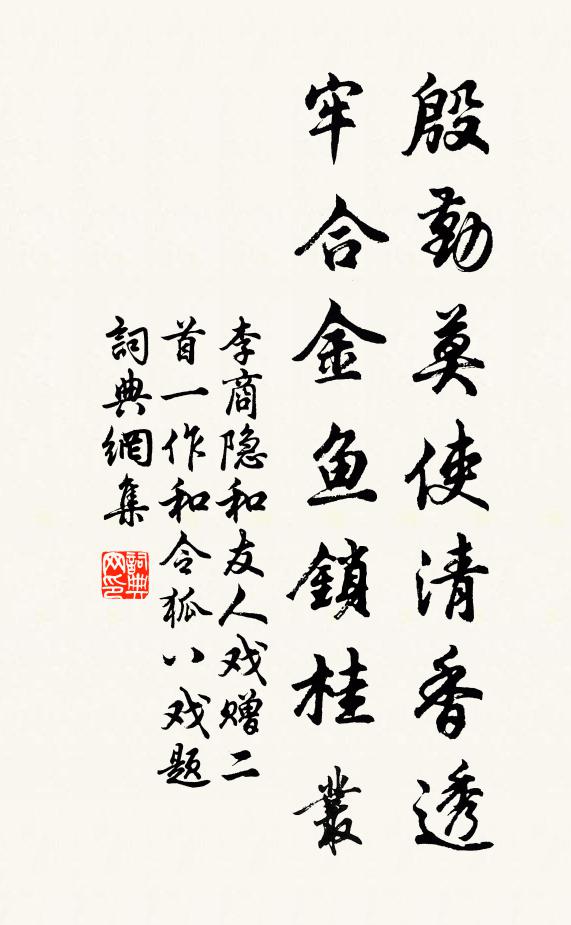 殷勤莫使清香透
牢合金鱼鎖桂叢
李商隐和友人戏赠二
首一作和令狐八戏题
詞典網集
詞典
网印